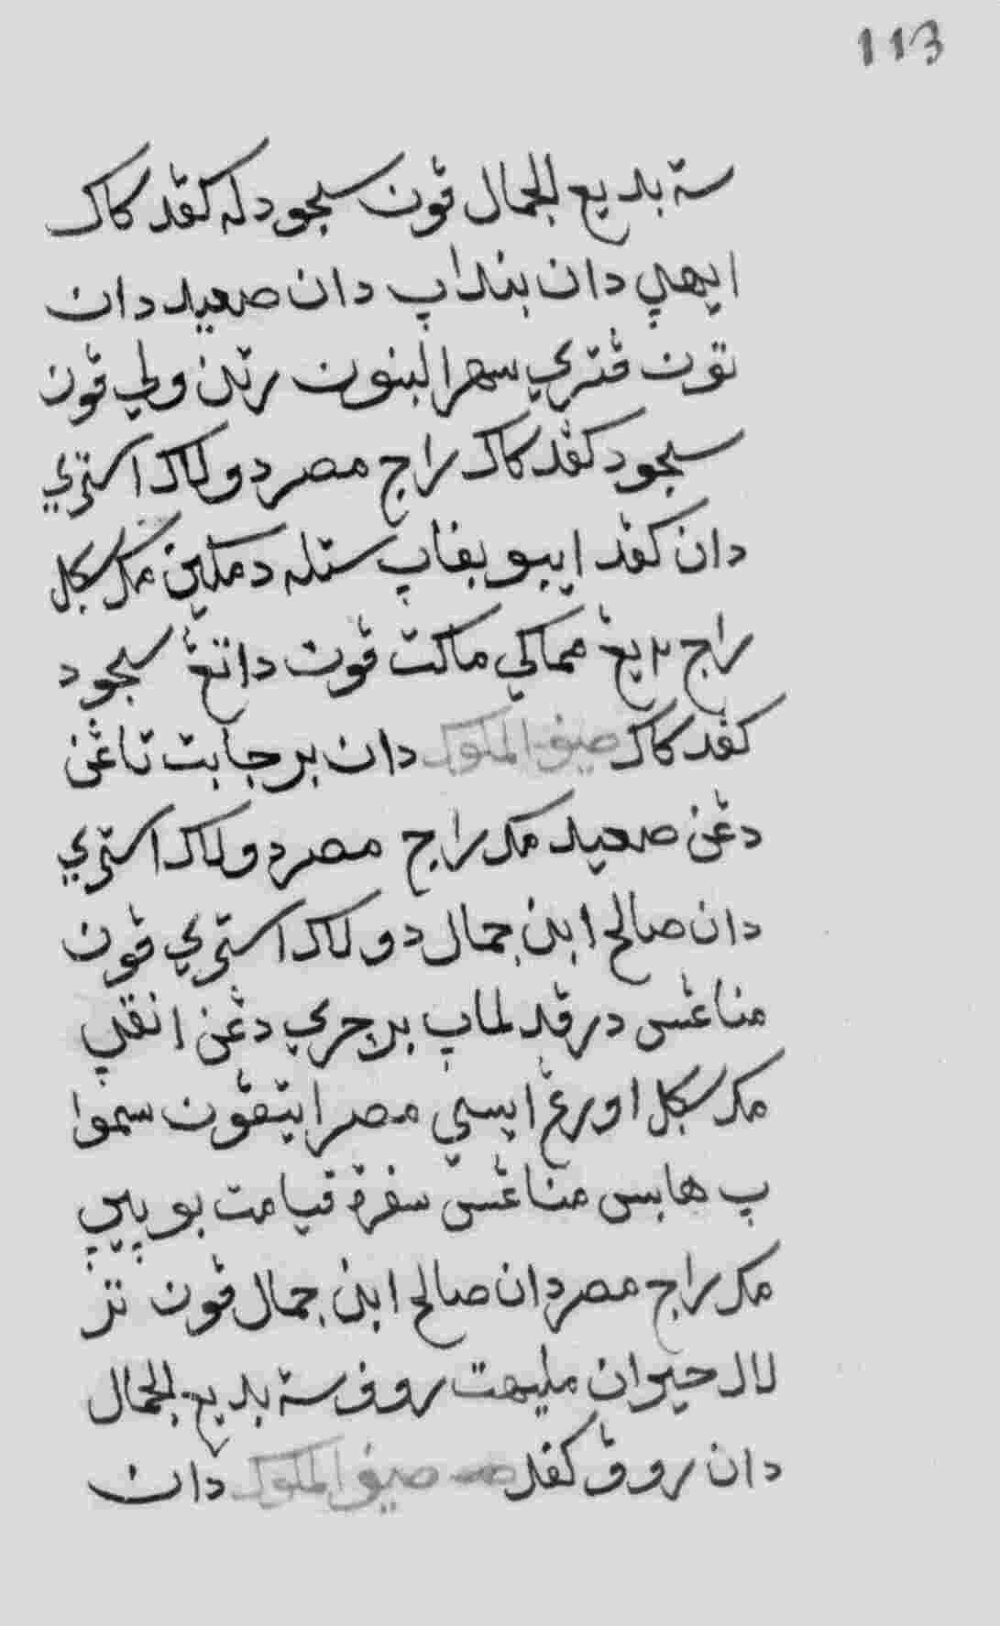 113
ستي بديع الجمال ڤون سجودله كڤد كاك
ايهڽ دان بنداڽ دان صعيد دان
تون ڤتري سهرالبنون رتن ولي ڤون
سجود كڤد كاك راج مصر دولاك استري
دان كڤد ايبو بڤاڽ ستله دمكين مك سكل
راج٢ يڠ مماكي ماكت ڤون داتڠ سجود
كڤد كاك صيف الملوك دان برجابت تاڠن
دڠن صعيد مك راج مصر دولاك استري
دان صالح ابن جمال دولاك استري ڤون
مناڠس درڤد لماڽ برچري دڠن انقڽ
مك سكل اورڠ ايسي مصر ايتڤون سموا
ڽ هابس مناڠس سفرة قيامت بوڽيڽ
مك راج مصر دان صالح ابن جمال ڤون تر
لالو حيران مليهت روڤ ستي بديع الجمال
دان روڤ كڤد صيف الملوك دان